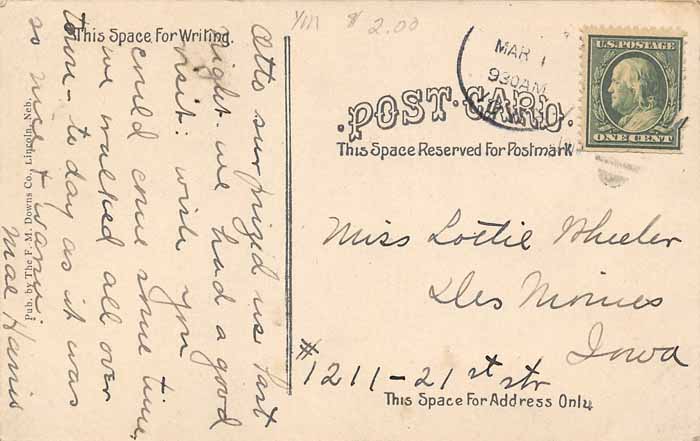 This Space For Writing.
Y111 $2.00
MAR 1
930AM
U.S. POSTAGE
ONE CENT
POST CARD.
This Space Reserved For Postmark
Otto surprized us last
night. we had a good
visit. wish you
could come some time,
we walked all over
town - to day as it was
so nice + warm.
Mae Harris
Pub. by The F. M. Downs Co., Lincoln, Neb.
Miss Lottie Wheeler
Des Moines
Iowa
#1211-21st str
This Space For Address Only